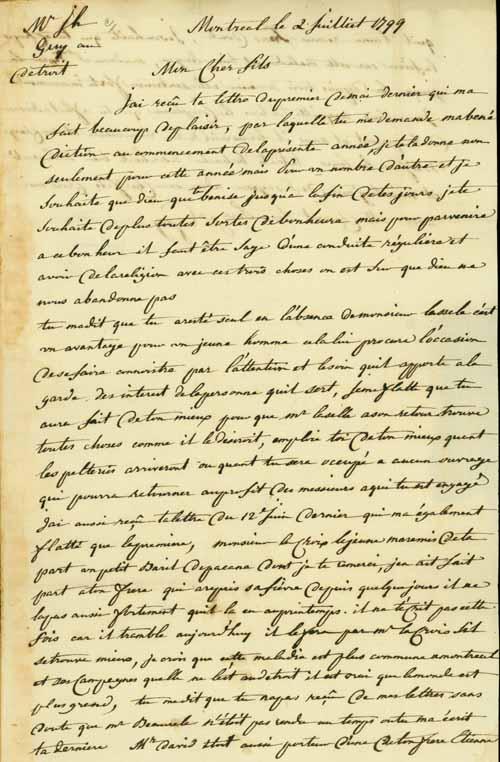 Mr Jh
Guy au
Detroit
Montreal le 2 Juilliet 1799
Mon Cher fils
Jai reçu ta lettre dupremier demai dernier qui ma
fait beaucoup deplaisir, par laquelle tu me demande mabéné
diction au commencement delaprésente année, je te ladonne non
seulement pour cette année mais pour un nombre dautre et je
souhaite que dieu te benise jusqua la fin detes jours je te
souhaite deplus toutes sortes debonheurs mais pour parvenire
a ce bonheur il faut être sage d'une conduite réguliere et
avoir delareligion avec ces trois choses on est seur que dieu ne
nous abandonne pas
tu madit que tu aresté seul en l'absence demonsieur lasselle c'est
un avantage pour un jeune homme cela lui procure l'occasion
desefaire connoitre par l'attention et lesoin quil apporte a la
garde des interet delapersonne quil sert, je me flatte que tu
aura fait deton mieux pour que mr laselle a son retour trouve
toutes choses comme il le désiroit, emploie toi deton mieux quant
les pelteries arriveront ou quant tu sera occupé a aucun ouvrage
qui pourra retourner auprofit des messieurs aqui tu est engagé
Jai aussi reçu talettre du 12e juin dernier qui ma également
flatté que lapremiere, monsieur la Croix lejeune maremis dela
part un petit Baril depacana dont je te remerci, jen ait fait
part aton frere qui arepris safièvre depuis quelque jours il ne
lapas aussi fortement quil la eu auprintemps. il ne técrit pas cette
fois car il tramble aujourdhuy il lefera par mr la Croix sil
setrouve mieux, je crois que cette maladie est plus commune amontreal
et ses Campagnes quelle ne lest audetroit il est vrai que lemonde est
plus grand, tu medit que tu napas reçu de mes lettres sans
doute que mr n'étoit pas rendu au temps ou tu ma écrit
ta derniere Mr david étoit aussi porteur d'une deton frere Etienne